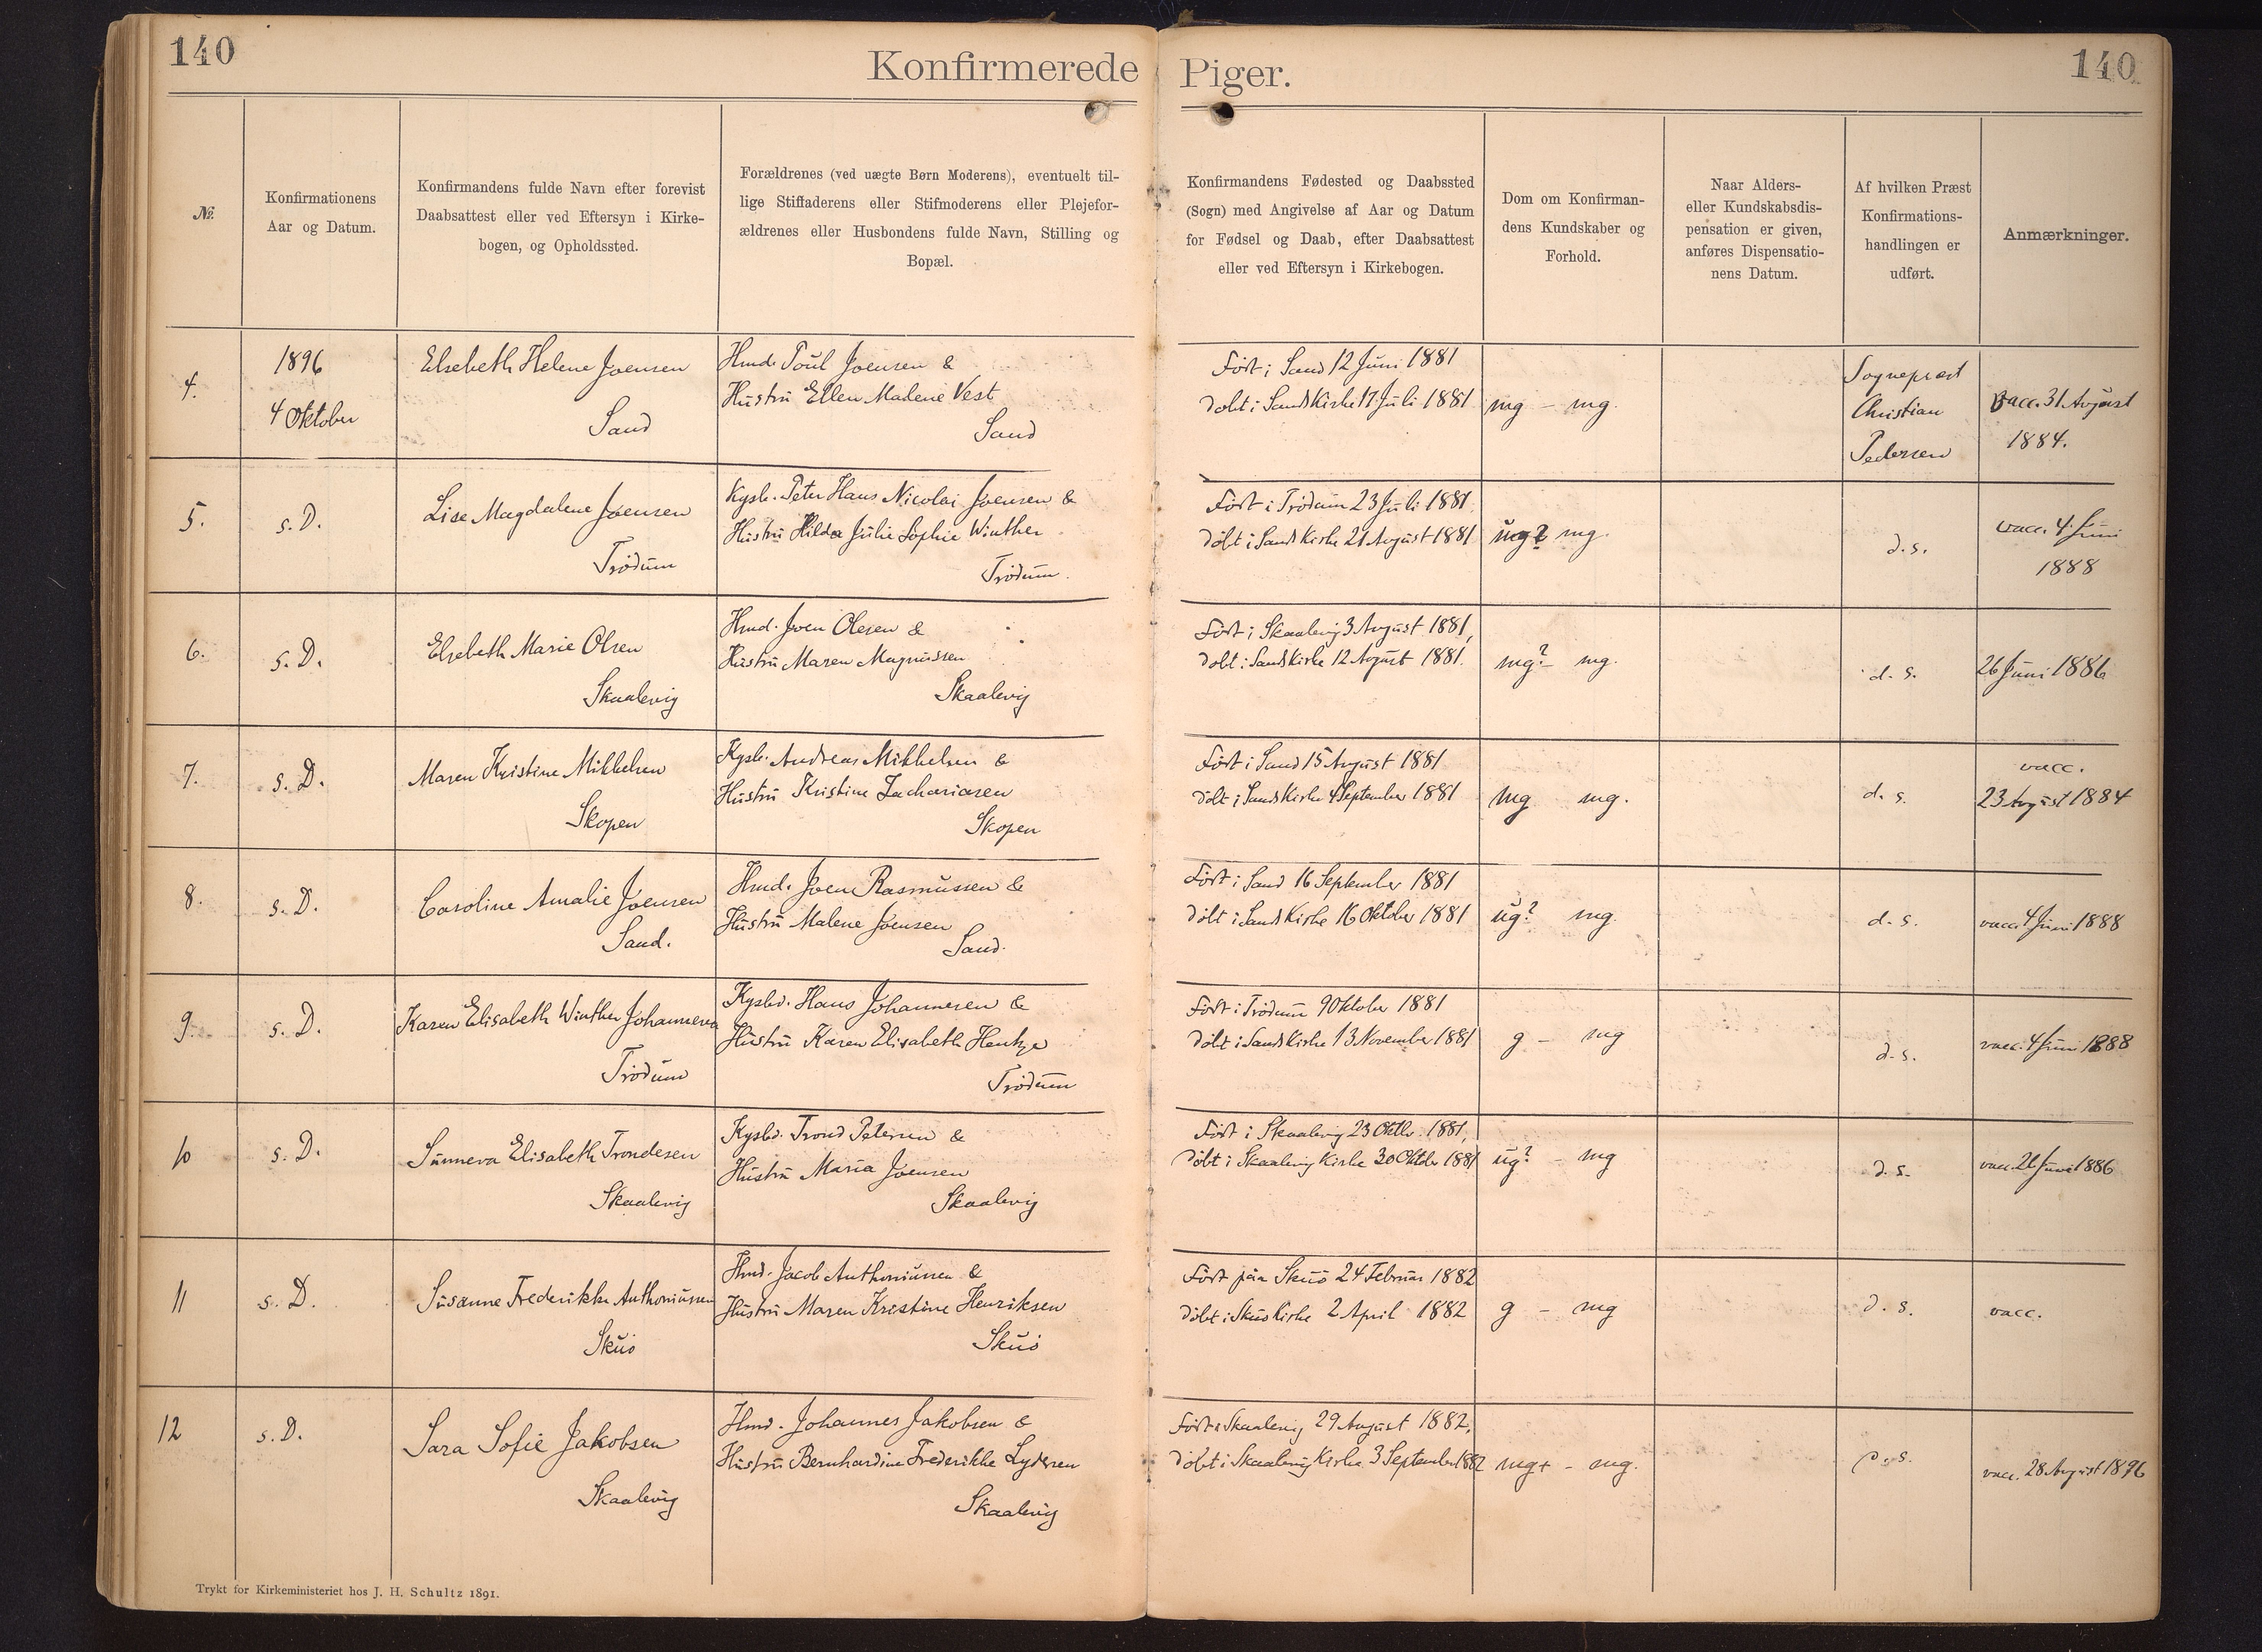 140
Konfirmerede Piger.
140
№
Konfirmationens
Aar og Datum.
Konfirmandens fulde Navn efter forevist
Daabsattest eller ved Eftersyn i Kirke-
bogen, og Opholdssted.
Forældrenes (ved uægte Børn Moderens), eventuelt til-
lige Stiffaderens eller Stifmoderens eller Plejefor-
ældrenes eller Husbondens fulde Navn, Stilling og
Bopæl.
Konfirmandens Fødested og Daabssted
(Sogn) med Angivelse af Aar og Datum
for Fødsel og Daab, efter Daabsattest
eller ved Eftersyn i Kirkebogen.
Dom om Konfirman-
dens Kundskaber og
Forhold.
Naar Alders-
eller Kundskabsdis-
pensation er given,
anføres Dispensatio-
nens Datum.
Af hvilken Præst
Konfirmations-
handlingen er
udført.
Anmærkninger.
4.
1896
4 Oktober
Elsebeth Helene Joensen
Sand
Hmd. Poul Joensen &
Hustru Ellen Malene Vest
Sand
Født i Sand 12 Juni 1881
døbt i Sands Kirke 17 Juli 1881
mg - mg.
Sognepræst
Christian
Pedersen
vacc. 31 August
1884.
5.
s. D.
Lise Magdalene Joensen
Trødum
Kgsb. Peter Hans Nicolai Joensen &
Hustru Hilda Julie Sophie Winther
Trødum.
Født i Trødum 23 Juli 1881.
døbt i Sands Kirke 21 August 1881
ug? mg.
d. s.
vacc. 4. Juni
1888
6.
s. D.
Elsebeth Marie Olsen
Skaalevig
Hmd. Joen Olesen &
Hustru Maren Magnussen
Skaalevig
Født i Skaalevig 3 August 1881,
døbt i Sands Kirke 12 August 1881.
mg? - mg.
d. s.
26 Juni 1886
7.
s. D.
Maren Kristine Mikkelsen
Skopen
Kgsb. Andreas Mikkelsen &
Hustru Kristine Zachariasen
Skopen
Født i Sand 15 August 1881
døbt i Sands Kirke 4 September 1881
mg mg.
d. s.
vacc.
23 August 1884
8.
s. D.
Caroline Amalie Joensen
Sand.
Hmd. Joen Rasmussen &
Hustru Malene Joensen
Sand.
Født i Sand 16 September 1881
døbt i Sands Kirke 16 Oktober 1881
ug? mg
d. s.
vacc. 4 Juni 1888
9.
s. D.
Karen Elisabeth Winther Johannesen
Trødum
Kgsbd. Hans Johannesen &
Hustru Karen Elisabeth Hentze
Trødum
Født i Trødum 9 Oktober 1881
døbt i Sands Kirke 13 November 1881
g - mg
d. s.
vacc. 4 Juni 1888
10
s. D.
Sunneva Elisabeth Trondesen
Skaalevig
Kgsbd. Trond Petersen &
Hustru Maria Joensen
Skaalevig
Født i Skaalevig 23 Oktb. 1881,
døbt i Skaalevig Kirke 30 Oktober 1881
ug? - mg
d. s.
vacc. 26 Juni 1886
11
s. D.
Susanne Frederikke Anthoniussen
Skuø
Hmd. Jacob Anthoniussen &
Hustru Maren Kristine Henriksen
Skuø
Født paa Skuø 24 Februar 1882
døbt i Skuø Kirke 2 April 1882
g - mg
d. s.
vacc.
12
s. D.
Sara Sofie Jakobsen
Skaalevig
Hmd. Johannes Jakobsen &
Hustru Bernhardine Frederikke Lydersen
Skaalevig
Født i Skaalevig 29 August 1882,
døbt i Skaalevig Kirke 3 September 1882
mg+ - mg.
d. s.
vacc. 28 August 1896
Trykt for Kirkeministeriet hos J. H. Schultz 1891.